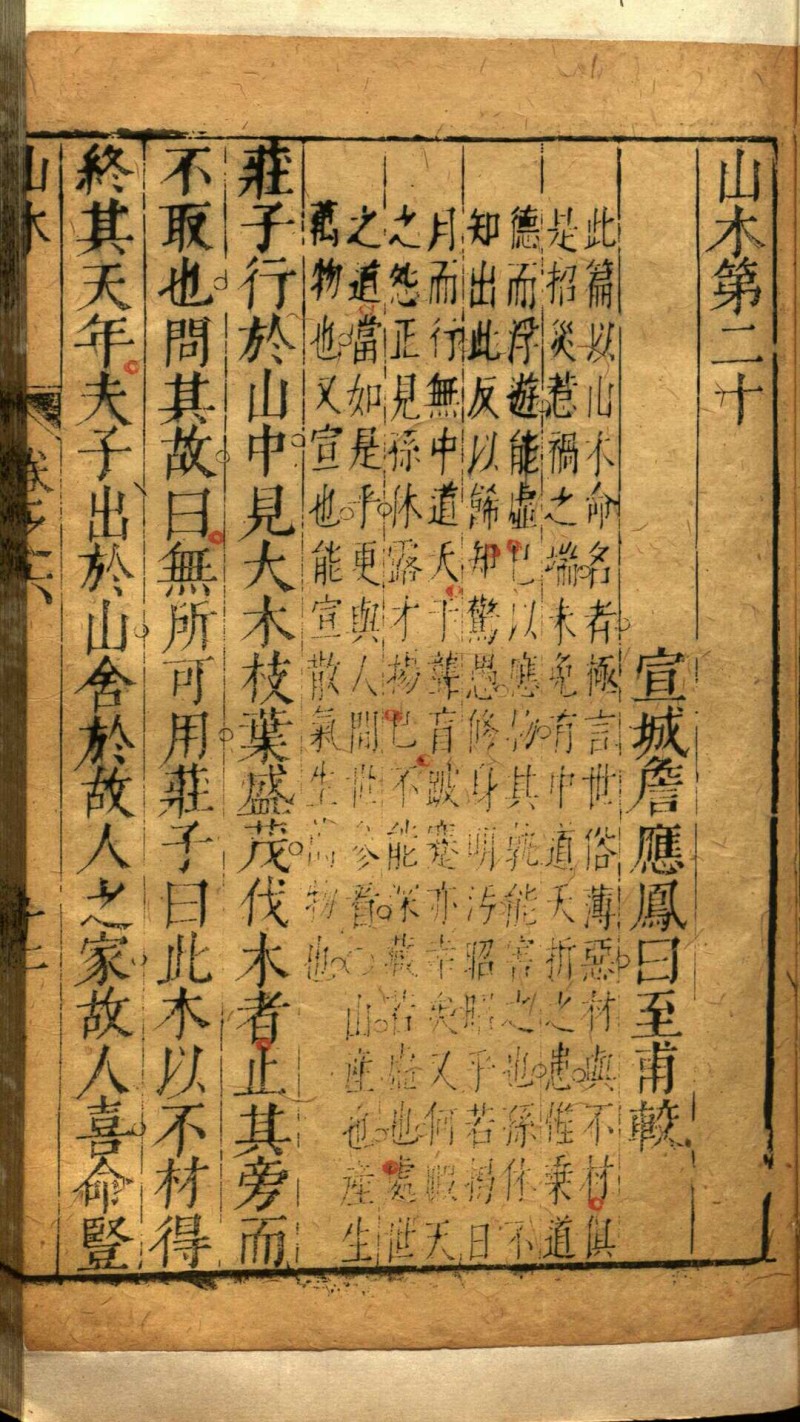 山木第二十
宣城詹應鳳曰至甫較
此篇以山木命名者極言世俗薄惡材與不材俱
是招災惹禍之端未免有中道夭折之患惟乗道
德而浮遊能虛己以應物其孰能害之也孫休不
知出此反以餙知驚愚修身明汚昭昭乎若揭日
月而行無中道夭于聾盲跛蹇亦幸矣又何暇天
之怨正見孫休露才揚己不能深藏若虛也處世
之道當如是乎更與人間世參看〇山產也產生
萬物也又宣也能宣散氣生萬物也
莊子行於山中見大木枝葉盛茂伐木者止其旁而
不取也問其故曰無所可用莊子曰此木以不材得
終其天年夫子出於山舍於故人之家故人喜命豎
山木